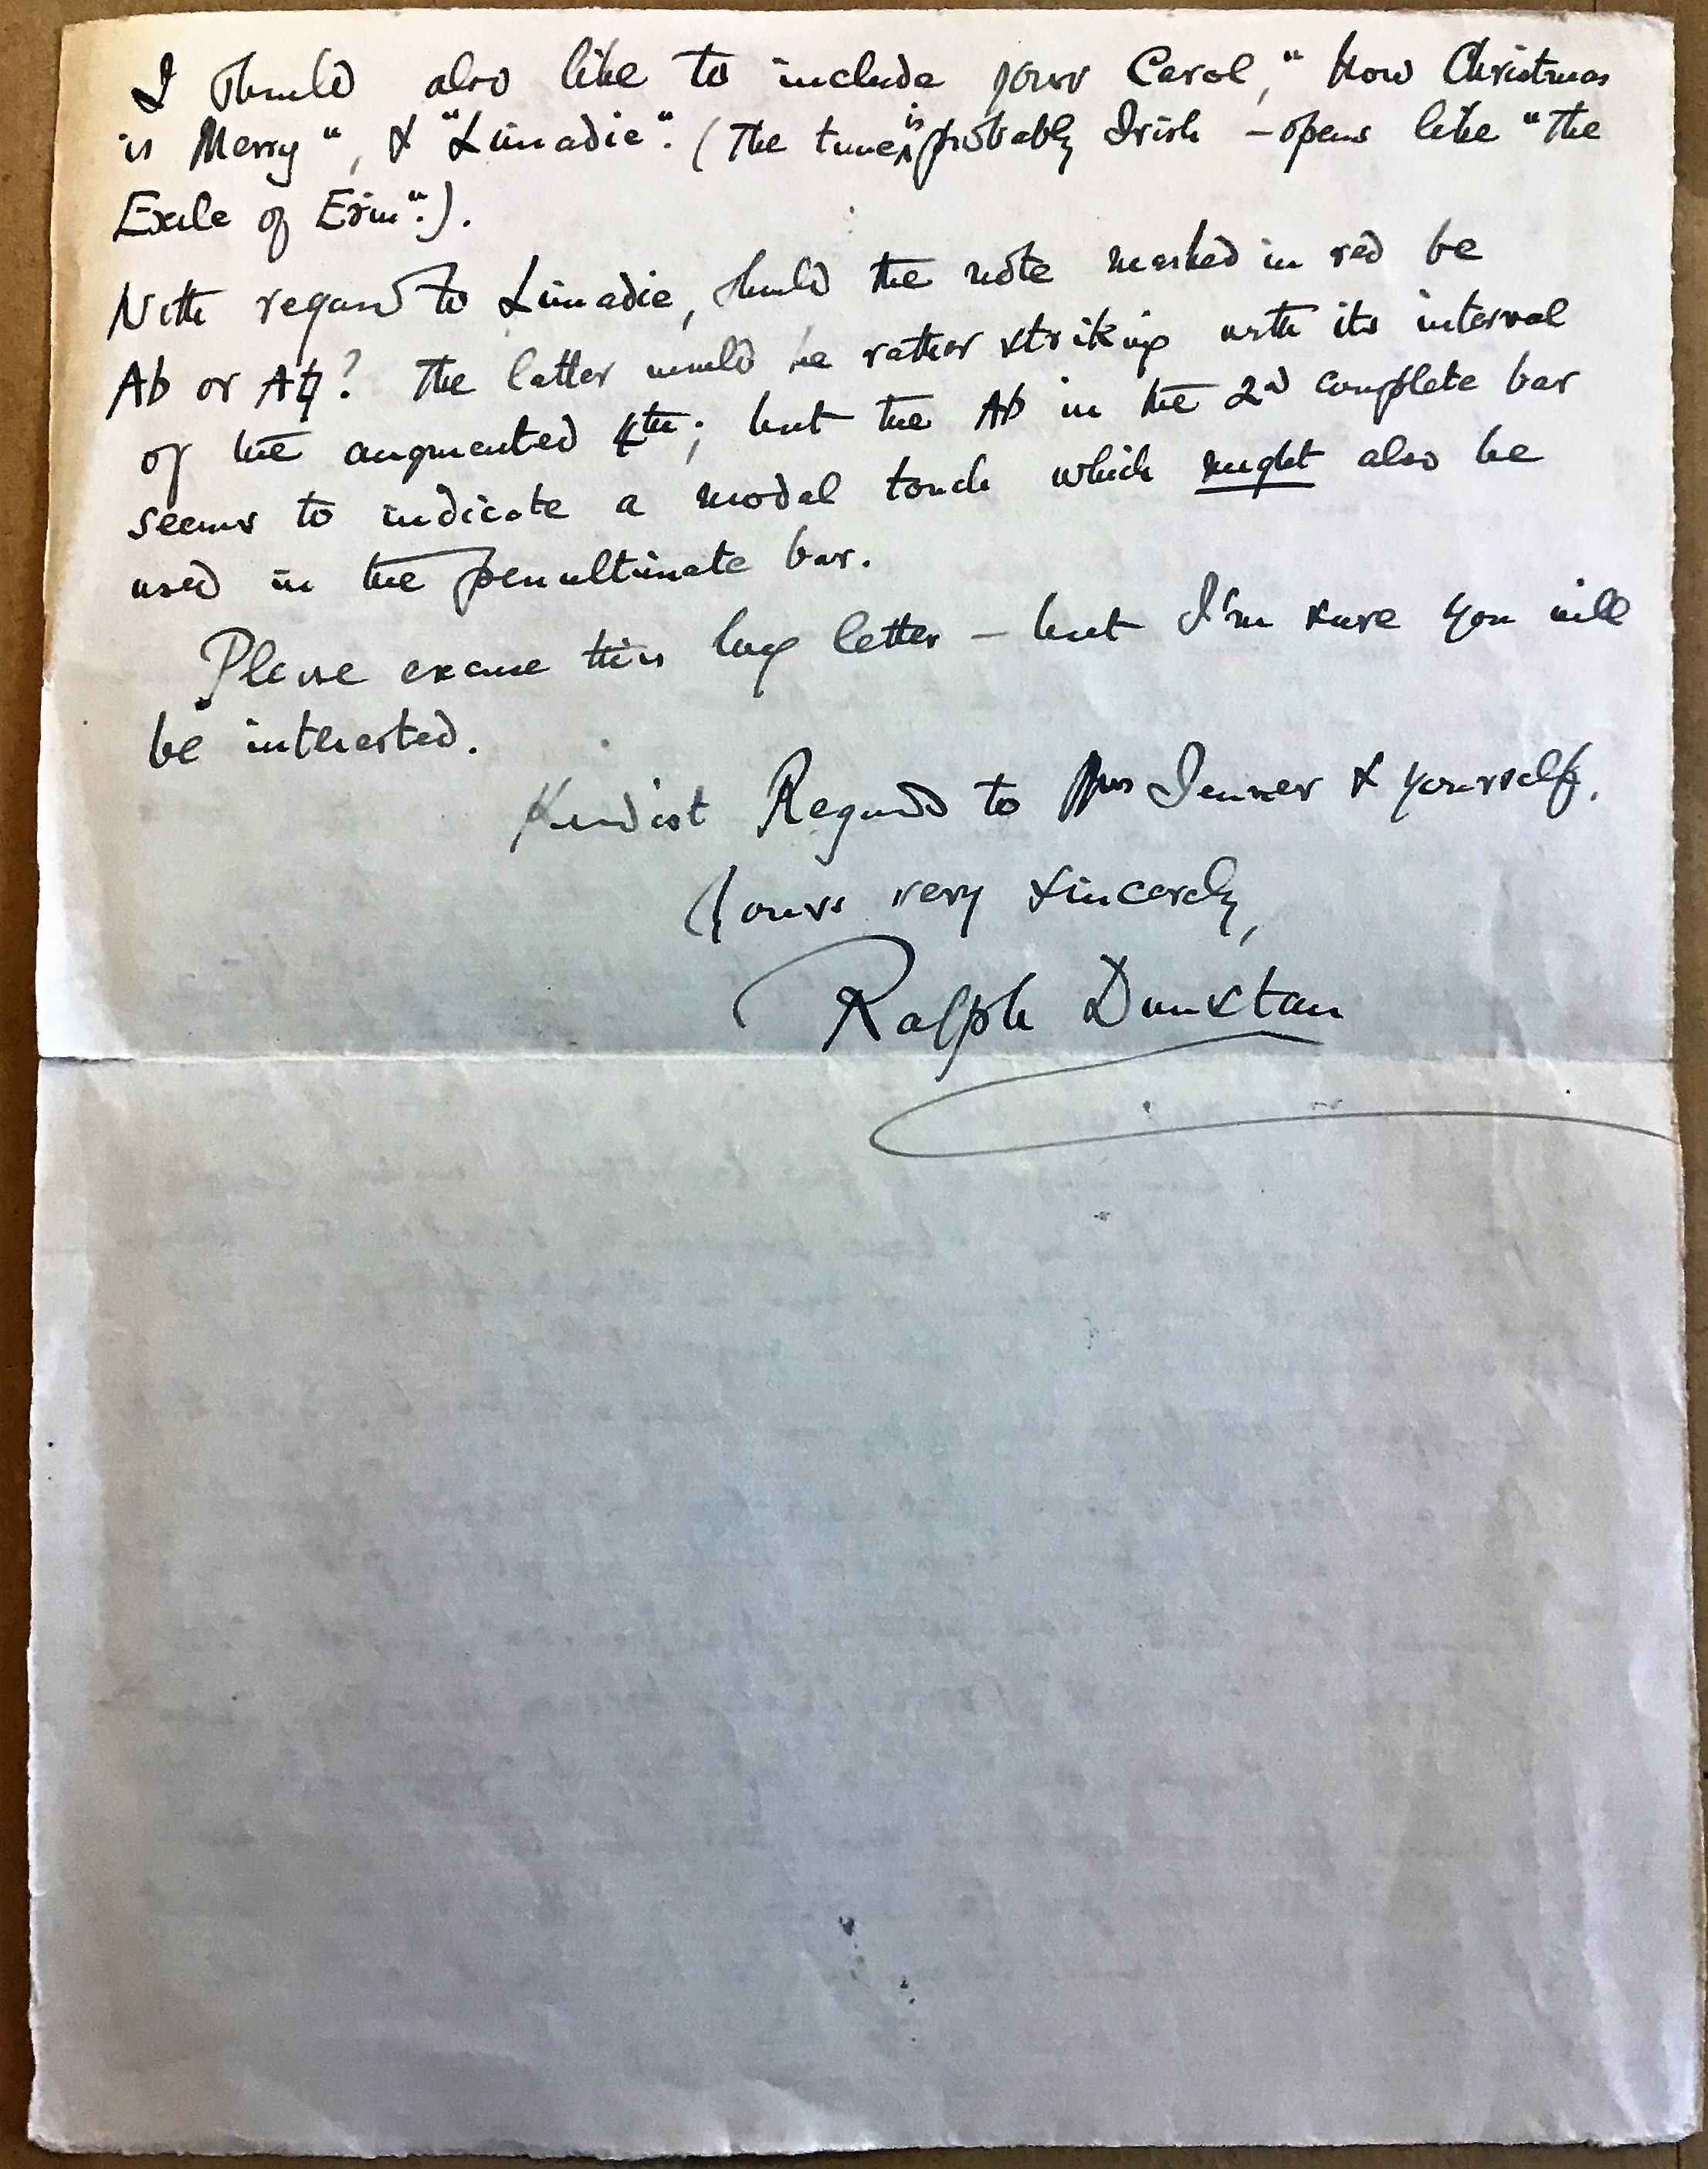 I should also like to include your Carol, "Now Christmas
is Merry", & "Limadie". (The tune is probably Irish – opens like "The
Exile of Erin".).
With regard to Limadie, should the note marked in red be
A♭ or A♮? The latter would be rather striking with its interval
of the augmented 4th; but the A♭ in the 2d complete bar
seems to indicate a modal touch which might also be
used in the penultimate bar.
Please excuse this long letter – but I'm sure you will
be interested.
Kindist Regards to Mrs Jenner & yourself.
Yours very sincerely,
Ralph Dunstan